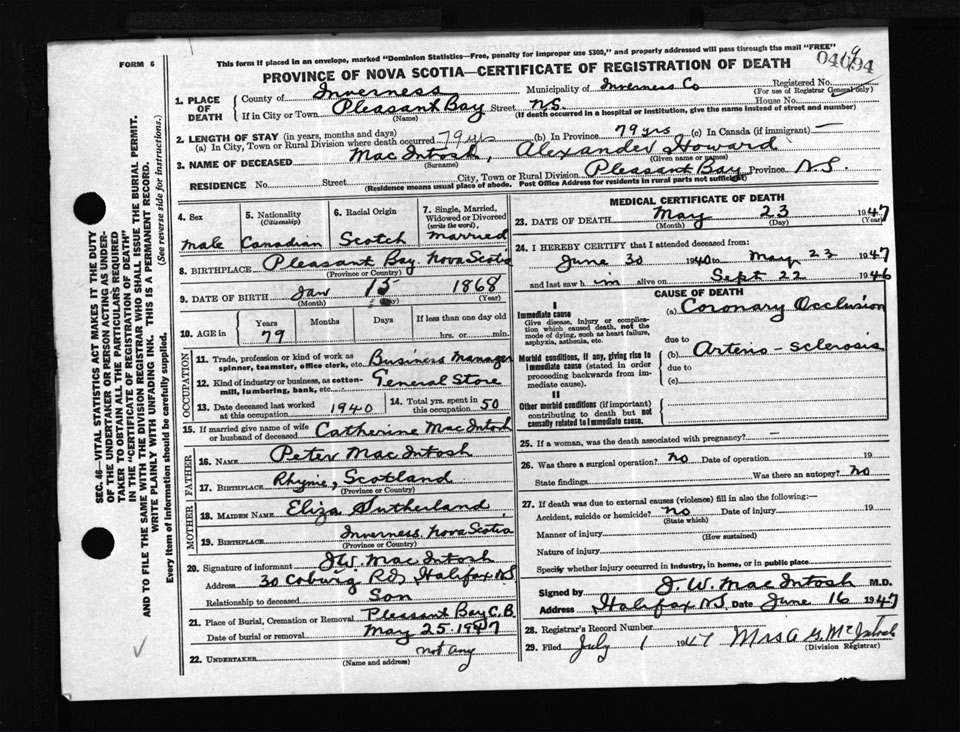 This form if placed in an envelope, marked "Dominion Statistics—Free, penalty for improper use $300," and properly addressed will pass through the mail "FREE"
FORM 6
PROVINCE OF NOVA SCOTIA—CERTIFICATE OF REGISTRATION OF DEATH
1. PLACE OF DEATH
County of Inverness Municipality of Inverness Co Registered No.
(For use of Registrar General only)
If in City or Town Pleasant Bay Street N.S. House No.
(Name) (If death occurred in a hospital or institution, give the name instead of street and number)
2. LENGTH OF STAY (in years, months and days)
(a) In City, Town or Rural Division where death occurred 79 yrs (b) In Province 79 yrs (c) In Canada (if immigrant) —
3. NAME OF DECEASED Mac Intosh, Alexander Howard
(Surname) (Given name or names)
RESIDENCE No. Street City, Town or Rural Division Pleasant Bay Province N.S.
(Residence means usual place of abode. Post Office Address for residents in rural parts not sufficient)
4. Sex
male
5. Nationality
(Citizenship)
Canadian
6. Racial Origin
Scotch
7. Single, Married, Widowed or Divorced
(write the word)
married
8. BIRTHPLACE Pleasant Bay Nova Scotia
(Province or Country)
9. DATE OF BIRTH Jan 15 1868
(Month) (Day) (Year)
10. AGE in Years Months Days If less than one day old
79 hrs. or min.
OCCUPATION
11. Trade, profession or kind of work as spinner, teamster, office clerk, etc. Business Manager
12. Kind of industry or business, as cotton-mill, lumbering, bank, etc. General Store
13. Date deceased last worked at this occupation 1940
14. Total yrs. spent in this occupation 50
15. If married give name of wife or husband of deceased Catherine Mac Intosh
FATHER
16. NAME Peter Mac Intosh
17. BIRTHPLACE Rhyme, Scotland
(Province or Country)
MOTHER
18. MAIDEN NAME Eliza Sutherland
19. BIRTHPLACE Inverness Nova Scotia
(Province or Country)
20. Signature of informant J.W. Mac Intosh
Address 30 Coburg Rd, Halifax N.S
Relationship to deceased Son
21. Place of Burial, Cremation or Removal Pleasant Bay C.B.
Date of burial or removal May 25 1947
22. UNDERTAKER not any
(Name and address)
MEDICAL CERTIFICATE OF DEATH
23. DATE OF DEATH May 23 1947
(Month) (Day) (Year)
24. I HEREBY CERTIFY that I attended deceased from:
June 30 1940 to May 23 1947
and last saw him alive on Sept 22 1946
CAUSE OF DEATH
I
Immediate cause
Give disease, injury or complication which caused death, not the mode of dying, such as heart failure, asphyxia, asthenia, etc.
(a) Coronary Occlusion
due to
Morbid conditions, if any, giving rise to Immediate cause (stated in order proceeding backwards from immediate cause).
(b) Arterio-sclerosis
due to
(c)
II
Other morbid conditions (if important) contributing to death but not causally related to Immediate cause.
25. If a woman, was the death associated with pregnancy? —
26. Was there a surgical operation? no Date of operation 19
State findings Was there an autopsy? no
27. If death was due to external causes (violence) fill in also the following:—
Accident, suicide or homicide? no Date of injury 19
(State which)
Manner of injury
(How sustained)
Nature of injury
Specify whether injury occurred in Industry, in home, or in public place
Signed by J. W. Mac Intosh M.D.
Address Halifax N.S. Date June 16 1947
28. Registrar's Record Number
29. Filed July 1 1947 Mrs A G. McIntosh
(Division Registrar)
SEC. 46—VITAL STATISTICS ACT MAKES IT THE DUTY
OF THE UNDERTAKER OR PERSON ACTING AS UNDER-
TAKER TO OBTAIN ALL THE PARTICULARS REQUIRED
IN THE "CERTIFICATE OF REGISTRATION OF DEATH"
AND TO FILE THE SAME WITH THE DIVISION REGISTRAR WHO SHALL ISSUE THE BURIAL PERMIT.
WRITE PLAINLY WITH UNFADING INK. THIS IS A PERMANENT RECORD.
Every item of information should be carefully supplied. (See reverse side for instructions.)